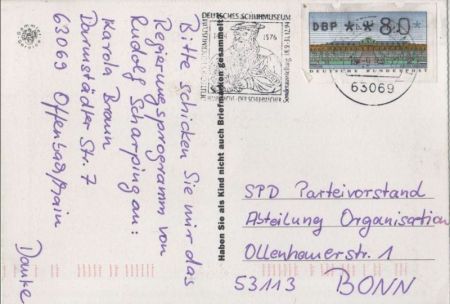 Bitte schicken Sie mir das
Regierungsprogramm von
Rudolf Scharping an:
Karola Braun
Darmstädter Str. 7
63069 Offenbach/Main
Danke
Haben Sie als Kind nicht auch Briefmarken gesammelt?
DEUTSCHES SCHUHMUSEUM
1576
63069
DBP **80
DEUTSCHE BUNDESPOST
SPD Parteivorstand
Abteilung Organisation
Ollenhauerstr. 1
53113 BONN